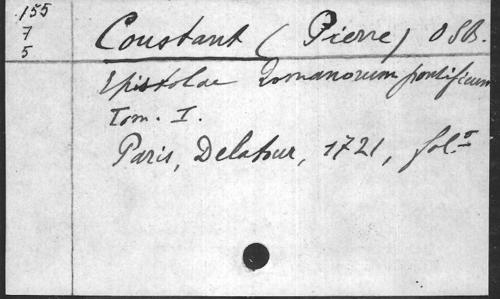 155
7
5
Constant (Pierre) OSB.
Epistolae Romanorum pontificum
Tom. I.
Paris, Delatour, 1721, fol.°